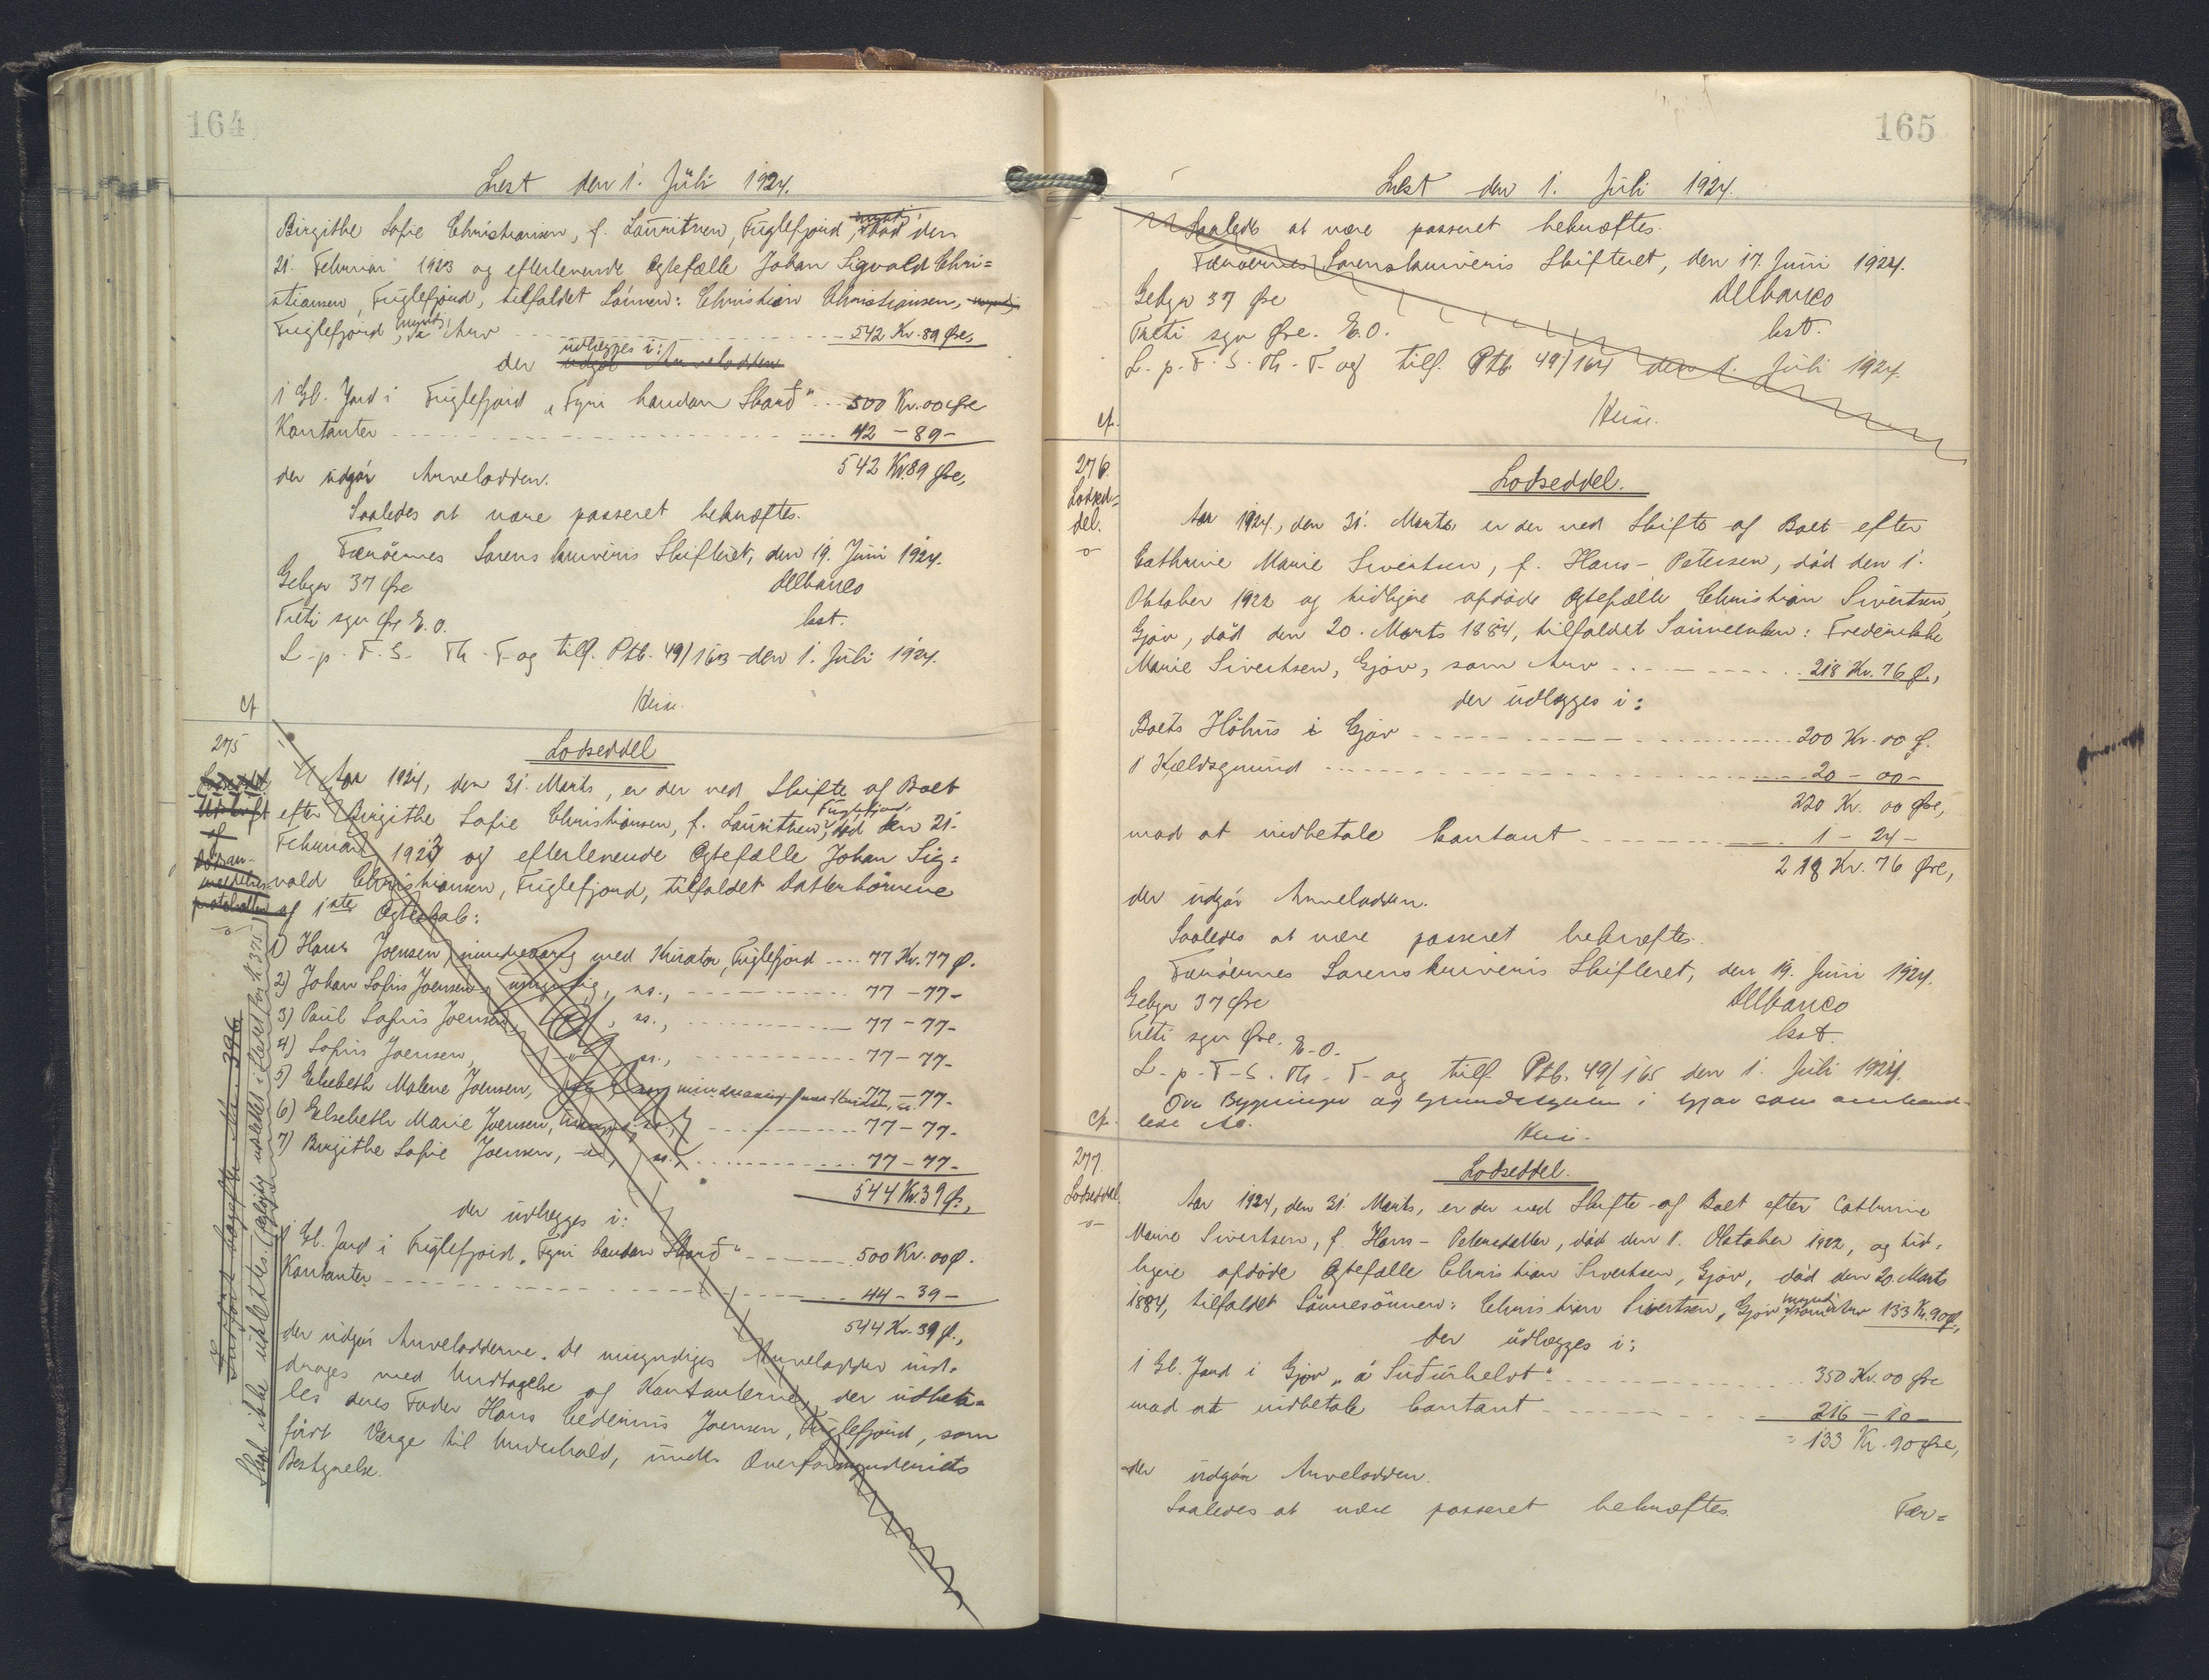 164
Læst den 1. Juli 1924.
Birgithe Sofie Christiansen, f. Lauritzen, Fuglefjord, død den
21. Februar 1923 og efterlevende Ægtefælle Johan Sigvald Chri=
stiansen, Fuglefjord, tilfaldet Sønnen: Christian Christiansen, myndig
Fuglefjord, myndig, i Arv 542 Kr. 89 Øre,
der udlægges i:
udgør Arvelodden
1 Gl. Jord i Fuglefjord "Fyri handan Skarð" 500 Kr. 00 Øre
Kontanter 42 - 89 -
542 Kr 89 Øre,
der udgør Arvelodden.
Saaledes at være passeret bekræftes.
Færøernes Sorenskriveris Skifteret, den 19. Juni 1924.
Gebyr 37 Øre
Treti syv Øre E.O. kst.
L. p. F. S. Th. F. og tilf. Ptb. 49/163 den 1. Juli 1924.
cf.
275
Lodseddel
Udskrift
af
Lodseddel
Aar 1924, den 31. Marts, er der ved Skifte af Boet
efter Birgithe Sofie Christiansen, f. Lauritzen, Fuglefjord, død den 21.
Februar 1923 og efterlevende Ægtefælle Johan Sig=
vald Christiansen, Fuglefjord, tilfaldet Datterbørnene
af 1ste Ægteskab:
1) Hans Joensen, mindreaarig med Kurator, Fuglefjord 77 Kr. 77 Ø.
2) Johan Sofus Joensen, umyndig, ss., 77 - 77 -
3) Poul Sofus Joensen, ss., 77 - 77 -
4) Sofus Joensen, ss., 77 - 77 -
5) Elsebeth Malene Joensen, mindreaarig 77 - 77 -
6) Elsebeth Marie Joensen, ss., 77 - 77 -
7) Birgithe Sofie Joensen, ss., 77 - 77 -
544 Kr. 39 Ø.,
der udlægges i:
1 Gl. Jord i Fuglefjord "Fyri handan Skarð" 500 Kr. 00 Ø.
Kontanter 44 - 39 -
544 Kr. 39 Ø.,
der udgør Arvelodderne. De umyndiges Arvelodder ind-
drages med Undtagelse af Kontanterne, der udbeta=
les deres Fader Hans Joensen, Fuglefjord, som
født Værge til Underhold, under Overformynderiets
Bestyrelse.
165
Læst den 1. Juli 1924.
Saaledes at være passeret bekræftes.
Færøernes Sorenskriveris Skifteret, den 17. Juni 1924.
Gebyr 37 Øre
Treti syv Øre. E.O. kst.
L. p. F. S. Th. F. og tilf. Ptb. 49/164 den 1. Juli 1924.
cf.
276.
Lodsed=
del.
Lodseddel.
Aar 1924, den 31. Marts er der ved Skifte af Boet efter
Cathrine Marie Sivertsen, f. Hans-Petersen, død den 1.
Oktober 1922 og tidligere afdøde Ægtefælle Christian Sivertsen,
Gjov, død den 20. Marts 1884, tilfaldet Sønneenken: Frederikke
Marie Sivertsen, Gjov, som Arv 218 Kr. 76 Ø.,
der udlægges i:
Boets Höhus i Gjov 200 Kr. 00 Ø.
1 Kældsgrund 20 - 00 -
220 Kr. 00 Øre,
mod at indbetale kontant 1 - 24 -
218 Kr. 76 Øre,
der udgør Arvelodden.
Saaledes at være passeret bekræftes.
Færøernes Sorenskriveris Skifteret, den 19. Juni 1924.
Gebyr 37 Øre
Treti syv Øre. E.O. kst.
L. p. F. S. Th. F. og tilf. Ptb. 49/165 den 1. Juli 1924.
Ovn Bygninger og Grundstykke i Gjov som
cf.
277.
Lodseddel.
Lodseddel.
Aar 1924, den 31. Marts, er der ved Skifte af Boet efter Cathrine
Marie Sivertsen, f. Hans-Petersdatter, død den 1. Oktober 1922, og tid=
ligere afdøde Ægtefælle Christian Sivertsen, Gjov, død den 20. Marts
1884, tilfaldet Sønnesønnen: Christian Sivertsen, Gjov, myndig, som Arv 133 Kr. 90 Ø.,
der udlægges i:
1 Gl. Jord i Gjov "á Suðurhelvt" 350 Kr. 00 Øre
mod at indbetale kontant 216 - 10 -
133 Kr. 90 Øre,
der udgør Arvelodden.
Saaledes at være passeret bekræftes. Fær=